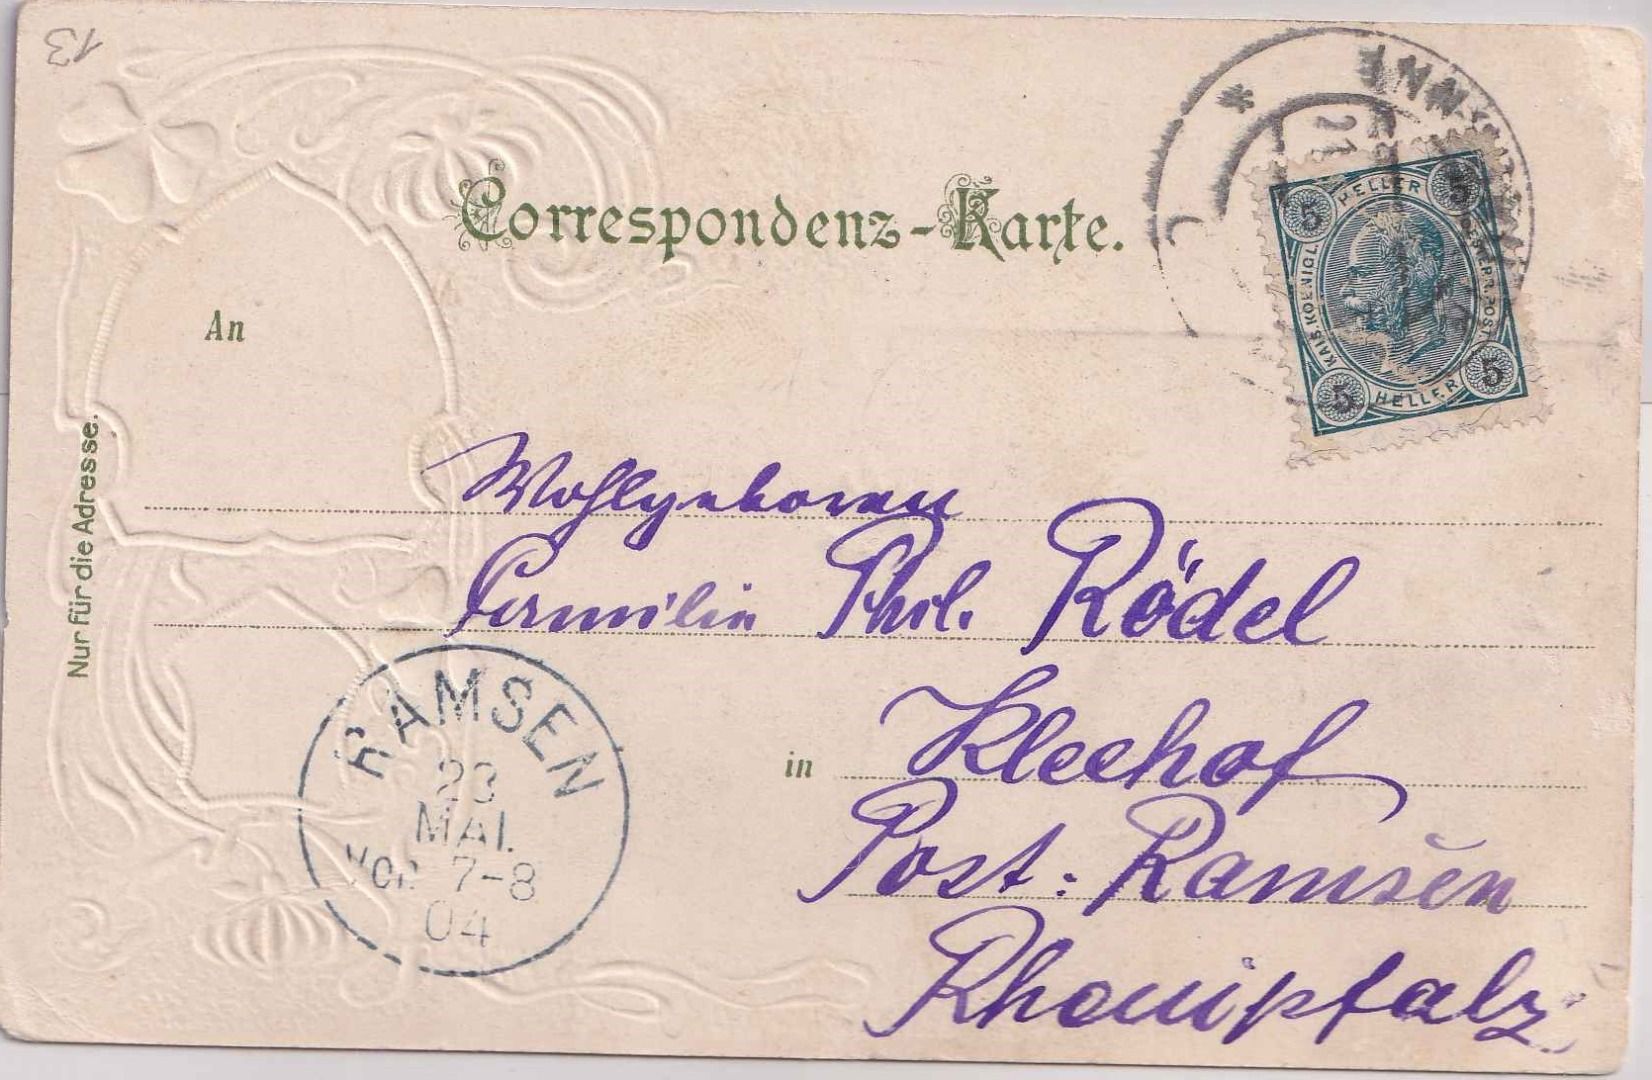 13
Correspondenz-Karte.
An
Nur für die Adresse.
5 HELLER 5
KAIS. KOENIGL. OESTERR. POST
5 HELLER 5
21
Wohlgeboren
Familie Phil. Rödel
in Kleehof
Post: Ramsen
Rheinpfalz
RAMSEN
23
MAI.
VOR 7-8
04